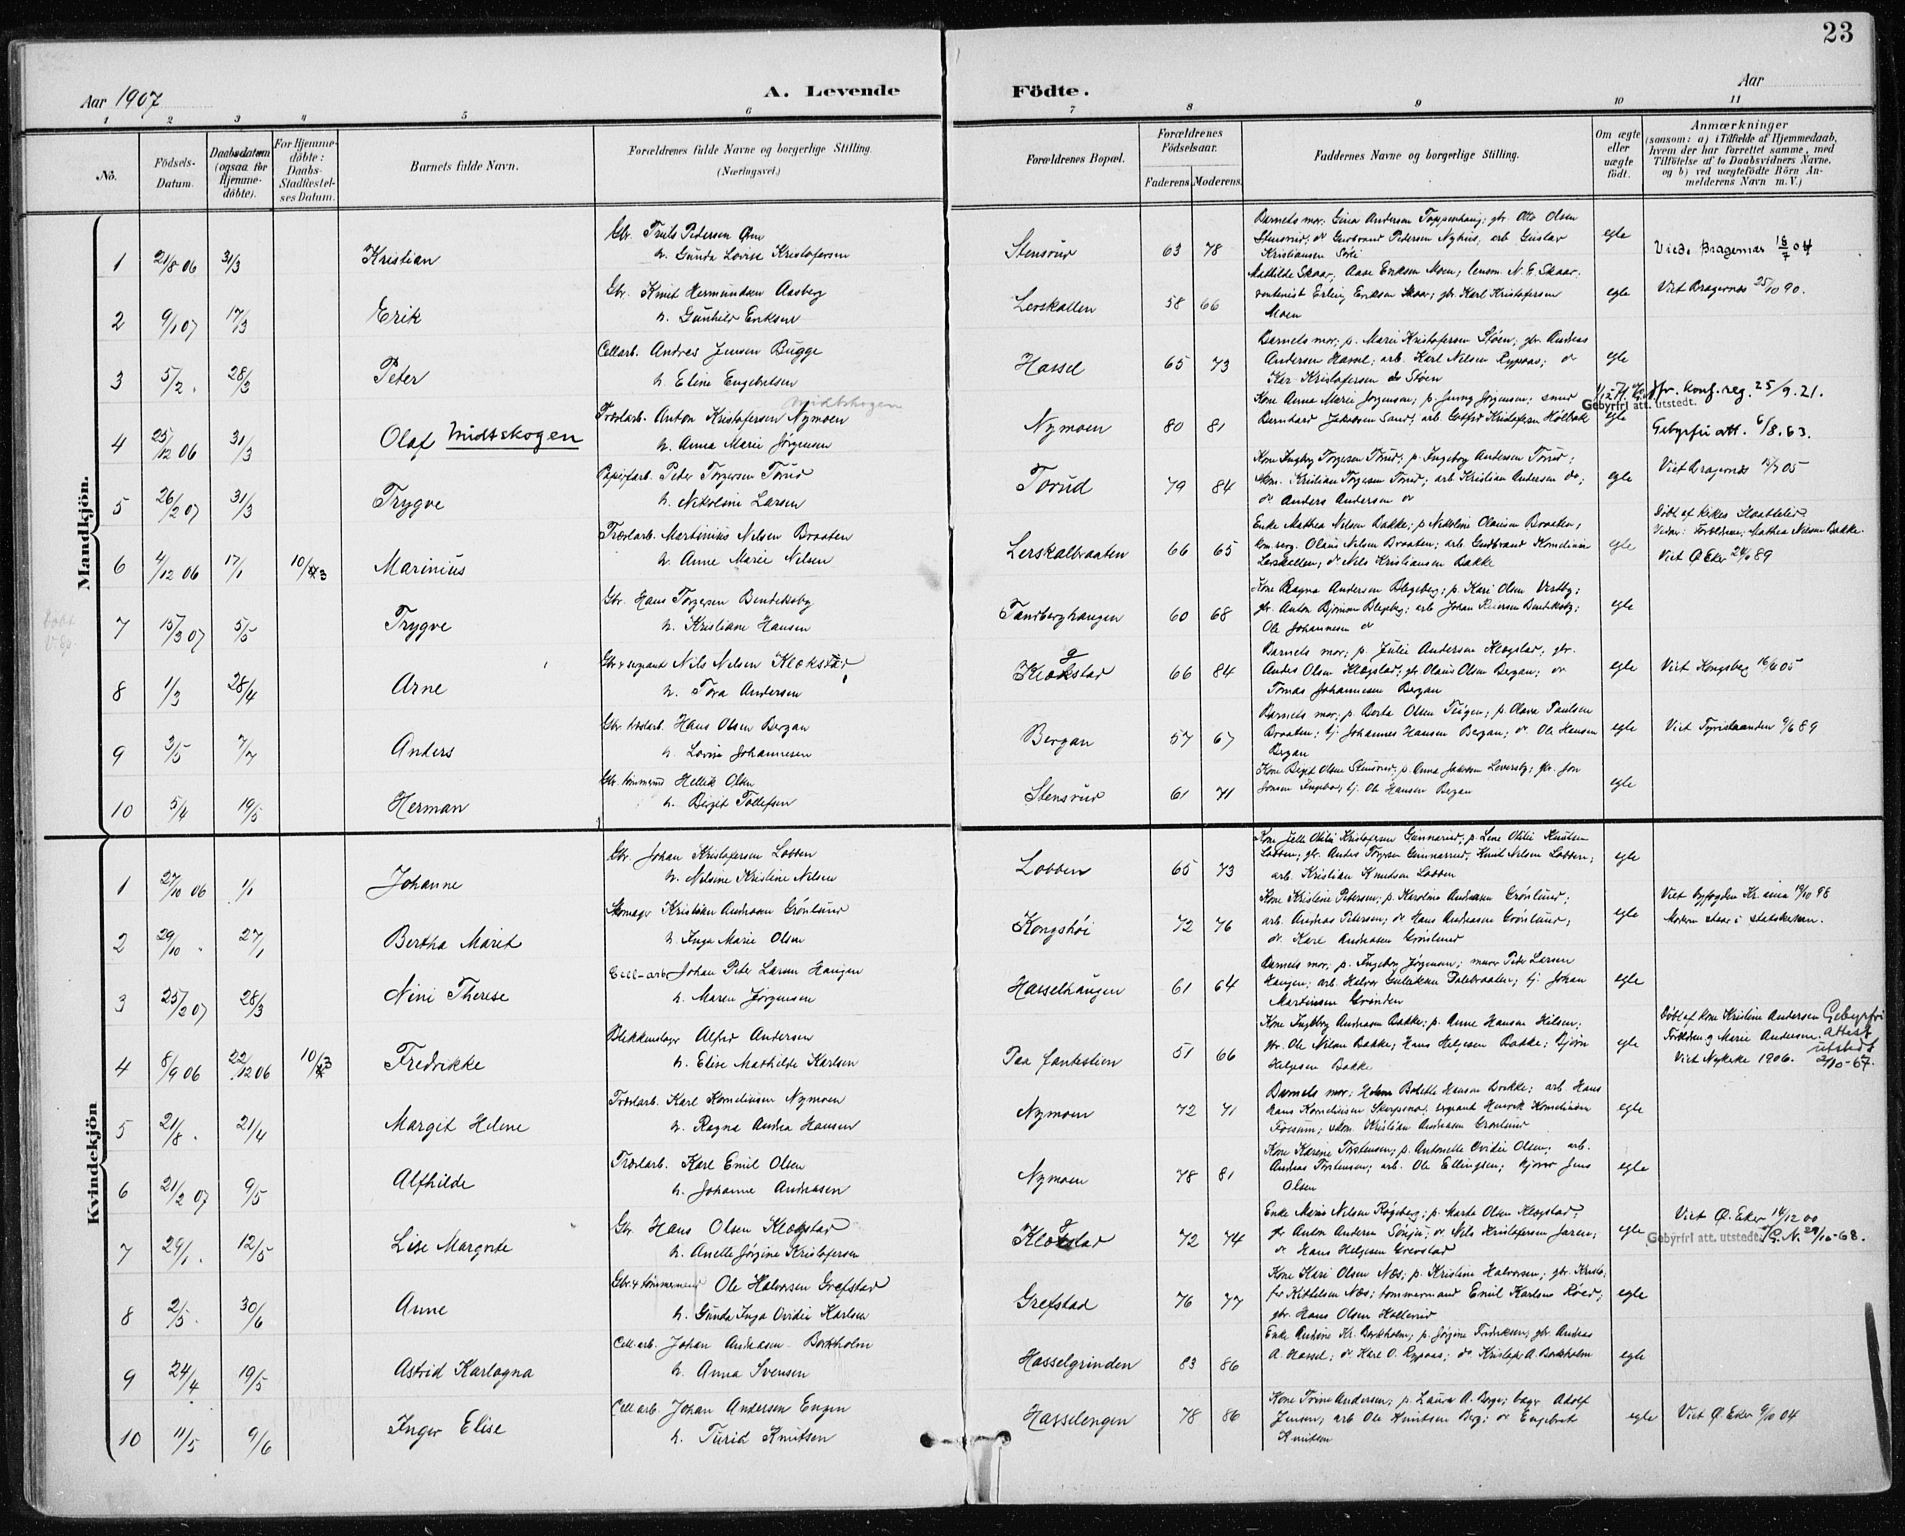 23
Aar 1907
A. Levende Födte.
Aar
1 2 3 4 5 6 7 8 9 10 11
No.
Födsels-Datum.
Daabsdatum (ogsaa for Hjemmedöbte).
For Hjemmedöbte: Daabs-Stadfæstelses Datum.
Barnets fulde Navn.
Forældrenes fulde Navne og borgerlige Stilling. (Næringsvei.)
Forældrenes Bopæl.
Forældrenes Födselsaar.
Faderens. Moderens.
Faddernes Navne og borgerlige Stilling.
Om ægte eller uægte födt.
Anmærkninger
(saasom: a) i Tilfælde af Hjemmedaab, hvem der har forrettet samme, med Tilföielse af to Daabsvidners Navne, og b) ved uægtefödte Börn Anmelderens Navn m. V.)
Mandkjön.
1 21/8 06 31/3 Kristian
Gbr. Truls Pedersen
h. Gunda Lovise Kristofersen
Stensrud 63 78
Barnets mor; Gina Andersen Toppenhaug; gbr. Otto Olsen
Stensrud; do Gudbrand Pedersen Nyhus; arb. Gustav
Kristiansen
egte
Viede Bragernæs 18/7 04
2 9/1 07 17/3 Erik
Gbr. Knut Hermundsen Aasberg
h. Gunhild Eriksen
Lerskallen 58 66
Mathilde Skaar, Aase Eriksen Moen; lensm. N. E. Skaar;
Erling Eriksen Skaar; gbr. Karl Kristofersen
Moen
egte
Viet Bragernæs 25/10 90.
3 5/2. 28/3 Peter
Cellarb. Andres Jensen Bugge
h. Eline Engebretsen
Hassel 65 73
Barnets mor; p. Marie Kristofersen Støen; gbr. Andreas
Andersen Hassel; arb. Karl Nilsen Rypaas; do
Kar. Kristofersen do Støen
egte
4 25/12 06 31/3 Olaf Midtskogen
Træslarb. Anton Kristofersen Nymoen
Midtskogen
h. Anna Marie Jørgensen
Nymoen 80 81
Kone Anna Marie Jørgensen; p. Jenny Jørgensen; smed
Bernhard Jakobsen Sand; arb. Kristofersen Holbæk
egte
Gebyrfri att. utstedt.
Jfr. konf. reg. 25/9.21.
Gebyrfri att. 6/8.63.
5 26/2 07 31/3 Trygve
Papirfarb. Peter Torgersen Torud
h. Nikoline Larsen
Torud 79 84
Kone Ingbg Torgersen Torud; p. Ingeborg Andersen Torud;
skom. Kristian Torgersen Torud; arb. Kristian Andersen do;
do Anders Andersen do
egte
Viet Bragernæs 05
6 4/12 06 17/1 10/3 Marinius
Træslarb. Martinius Nilsen Braaten
h. Anne Marie Nilsen
Lerskalbraaten 66 65
Enke Mathea Nilsen Bakke; p. Nikoline Olausen Braaten;
Olaus Nilsen Braaten; arb. Gudbrand Korneliusen
Lerskallen; do Nils Kristiansen Bakke
egte
Døbt af
Vidner: Forældrene, Mathea Nilsen Bakke.
Viet Ø. Eker 89
7 15/3 07 5/5 Trygve
Gbr. Hans Torgersen Bendiksby
h. Kristiane Hansen
Tandberghaugen 60 68
Kone Ragna Andersen Blegeberg; p. Kari Olsen Vestby;
gbr. Anton Bjørnsen Blegeberg; arb. Johan Bendiksby;
Ole Johannesen do
egte
8 1/3 28/4 Arne
Gbr. & sergeant Nils Nilsen Klokstad
h. Tora Andersen
Klokstad g 66 84
Barnets mor; p. Julie Andersen Klogstad; gbr.
Anders Olsen Klogstad; gbr. Olaus Olsen Bergan; do
Tomas Johannesen Bergan
egte
Viet Kongsberg 16/6 05
9 3/5 7/7 Anders
Gbr. Hans Olsen Bergan
h. Lovise Johannesen
Bergan 57 67
Barnets mor; p. Berta Olsen Teigen; p. Olava Paulsen
Braaten; tj. Johannes Hansen Bergan; do Ole Hansen
Bergan
egte
Viet Tyristranden 9/6 89
10 5/4 19/5 Herman
Gbr. tømmermd Hellik Olsen
h. Birgit Tollefsen
Stensrud 61 71
Kone Birgit Olsen Stensrud; p. Anna Jakobsen Leversby; gbr. Jon
Jonsen; tj. Ole Hansen Bergan
egte
Kvindekjön
1 27/10 06 1/1 Johanne
Gbr. Johan Kristofersen Lobben
h. Nilsine Kristine Nilsen
Lobben 65 73
Kone Otilie Kristofersen Gunnarud; p. Lene Otilie Knutsen
Lobben; gbr. Anders Torgersen Gunnarud, Knut Nilsen Lobben;
arb. Kristian Knutsen Lobben
egte
2 29/10. 27/1 Bertha Marit
Skomager Kristian Andreasen Grønlund
h. Inga Marie Olsen
Kongshöi 72 76
Kone Kristine Petersen; p. Karoline Andreasen Grønlund;
arb. Andreas Petersen; do Hans Andreasen Grønlund;
do. Karl Andreasen Grønlund
egte
Viet byfogden Kr.ania 19/10 98
Modern staar i statskirken.
3 25/2 07 28/3 Nini Therese
Cell-arb. Johan Peter Larsen Haugen
h. Maren Jørgensen
Hasselhaugen 61 64
Barnets mor; p. Ingeborg Jørgensen; murer Peter Larsen
Haugen; arb. Halvor Gulliksen Dalebraaten; tj. Johan
Martinsen Grønden
egte
4 8/9 06 22/12 06 10/3 Fredrikke
Blikkenslager Alfred Andersen
h. Elise Mathilde Karlsen
Paa fantestien 51 66
Kone Ingeborg Andreasen Bakke; p. Anne Hansen Hilsen;
gbr. Ole Nilsen Bakke; Hans Helgesen Bakke; Bjørn
Helgesen Bakke
egte
Døbt af kone Kristine Andersen
Forældrene og Marie Andersen.
Viet Nykirke 1906.
Gebyrfri Attest utstedt 2/10-67.
5 21/8. 21/4 Margit Helene
Træslarb. Karl Korneliusen Nymoen
h. Ragna Andrea Hansen
Nymoen 72 71
Barnets mor; Bolette Hansen Bakke; arb. Hans
Hans Korneliusen; sergeant Henrik Korneliusen
Fossum; skom. Kristian Andreasen Grønlund
egte
6 21/2 07 9/5 Alfhilde
Træslarb. Karl Emil Olsen
h. Johanne Andreasen
Nymoen 78 81
Kone Karine Torstensen; p. Antonette Ovidia Olsen; arb.
Andreas Torstensen; arb. Ole Ellingsen; kjører Jens
Olsen
egte
7 29/1. 12/5 Lise Margrete
Gbr. Hans Olsen Klogstad
h. Anette Jørgine Kristofersen
Klokstad g 72 74
Enke Maria Nilsen Røgeberg; p. Marte Olsen Klogstad;
gbr Anton Andersen Sønju; do Nils Kristofersen Jaren;
do Hans Helgesen Grevstad
egte
Viet Ø. Eker 14/12 00
Gebyrfri att. utstedt. G.N. 29/10-68.
8 2/5. 30/6 Anne
Gbr. & tømmermd Ole Halvorsen Grefstad
h. Gunda Inga Ovidia Karlsen
Grefstad 76 77
Kone Kari Olsen Næs; p. Kristine Halvorsen; gbr. Kristo-
fer Kittelsen Næs; tømmermand Emil Karlsen Röed;
gbr. Hans Olsen Kollerud
egte
9 24/4 19/5 Astrid Karlagna
Cellarb. Johan Andreasen Borkholm
h. Anna Svensen
Hasselgrinden 83 86
Enke Andrine Kr. Borkholm; p. Jørgine Fredriksen; gbr. Andreas
A. Hassel; do Karl O. Rypaas; do. Kristofer A. Borkholm
egte
10 11/5 9/6 Inger Elise
Cellarb. Johan Andersen Engen
h. Turid Knutsen
Hasselengen 78 86
Kone Trine Andersen; p. Laura A. Berg; bager Adolf
Jensen; arb Ole Knutsen Berg; do Engebret
Knutsen
egte
Viet Ø. Eker 9/10 04